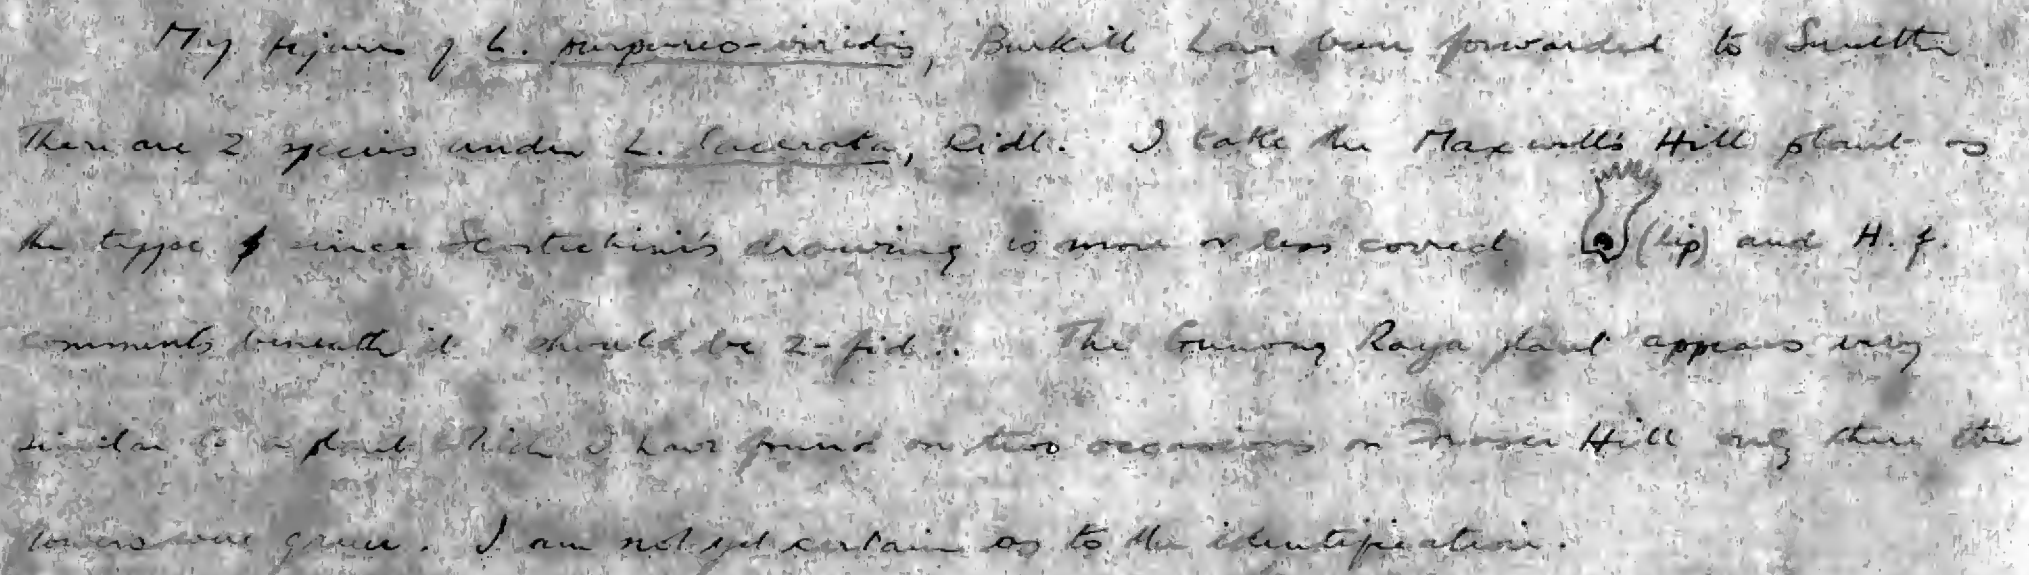 My figures of L. purpureo-viridis, Burkill have been forwarded to
There are 2 species under L. lacerata, Ridl. I take the Maxwell's Hill plant as
the type since Scortechini's drawing is more or less correct (lip) and H. f.
comments beneath it "should be 2-fid". The Gunong Raya plant appears very
similar to a plant which I have found on two occasions on Fraser Hill only there the
flowers were green. I am not yet certain as to the identification.